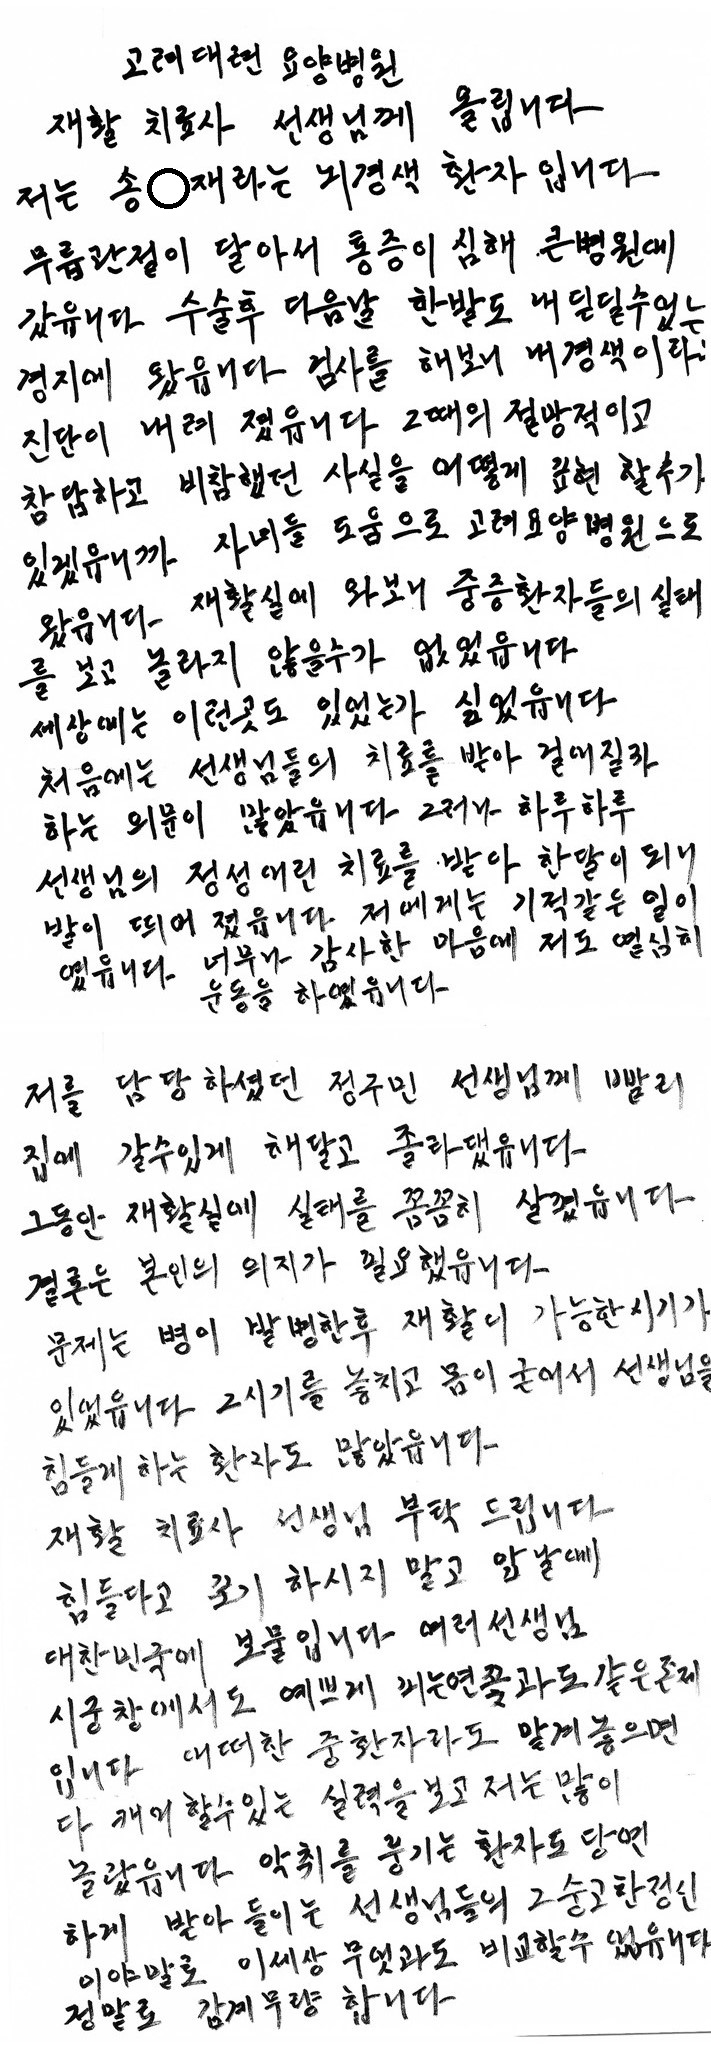 고려대련 요양병원
재활 치료사 선생님께 올립니다
저는 송○재라는 뇌경색 환자 입니다
무릎관절이 닳아서 통증이 심해 큰병원에
갔읍니다 수술후 다음날 한발도 내 딛딜수없는
경지에 왔읍니다 검사를 해보니 내경색이라는
진단이 내려 졌읍니다 그때의 절망적이고
참담하고 비참했던 사실을 어떻게 표현 할수가
있겠읍니까 자녀들 도움으로 고려요양병원으로
왔읍니다 재활실에 와보니 중증환자들의 실태
를 보고 놀라지 않을수가 없었읍니다
세상에는 이런곳도 있었는가 싶었읍니다
처음에는 선생님들의 치료를 받아 걸어질라
하는 의문이 많았읍니다 그러나 하루하루
선생님의 정성어린 치료를 받아 한달이 되니
발이 띄어 졌읍니다 저에게는 기적같은 일이
였읍니다 너무나 감사한 마음에 저도 열심히
운동을 하였읍니다
저를 담당하셨던 정구민 선생님께 빨리
집에 갈수있게 해달고 졸라댔읍니다
그동안 재활실에 실태를 꼼꼼히 살폈읍니다
결론은 본인의 의지가 필요했읍니다
문제는 병이 발병한후 재활이 가능한시기가
있었읍니다 그시기를 놓치고 몸이 굳어서 선생님을
힘들게 하는 환자도 많았읍니다
재활 치료사 선생님 부탁 드립니다
힘들다고 포기 하시지 말고 앞날에
대한민국에 보물입니다 여러선생님
시궁창에서도 예쁘게 피는연꽃과도 같은존재
입니다 어떠한 중환자라도 맡겨 놓으면
다 케어 할수있는 실력을 보고 저는 많이
놀랐읍니다 악취를 풍기는 환자도 당연
하게 받아 들이는 선생님들의 그 숭고한정신
이야말로 이세상 무엇과도 비교할수 없읍니다
정말로 감계무량 합니다